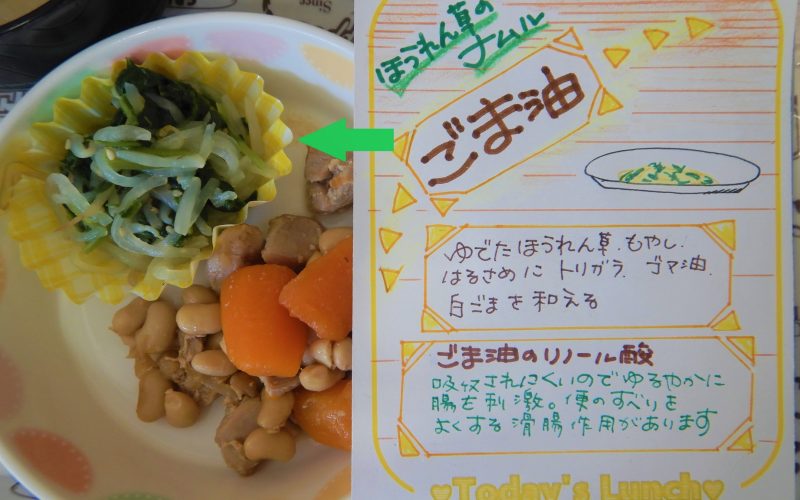 ほうれん草の
ナムル
ごま油
ゆでたほうれん草、もやし、
はるさめに トリガラ、ゴマ油、
白ごまを和える
ごま油のリノール酸
吸収されにくいのでゆるやかに
腸を刺激。便のすべりを
よくする滑腸作用があります
♥Today's Lunch♥